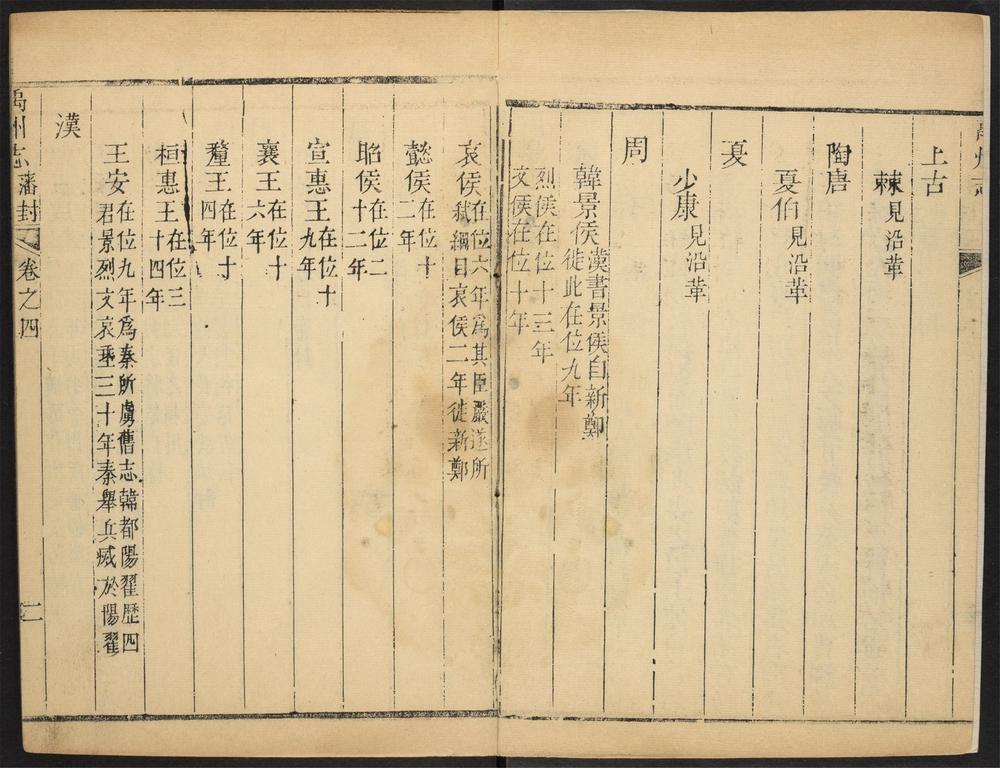 上古
棘見沿革
陶唐
夏伯見沿革
夏
少康見沿革
周
韓景侯漢書景侯自新鄭
徙此在位九年
烈侯在位十三年
文侯在位十年
哀侯在位六年為其臣嚴遂所
弒綱目哀侯二年徙新鄭
懿侯在位十
二年
昭侯在位二
十二年
宣惠王在位十
九年
襄王在位十
六年
釐王在位十
四年
桓惠王在位三
十四年
王安在位九年為秦所虜舊志韓都陽翟歷四
君景烈文哀垂三十年秦舉兵滅於陽翟
漢
禹州志 藩封 卷之四 二